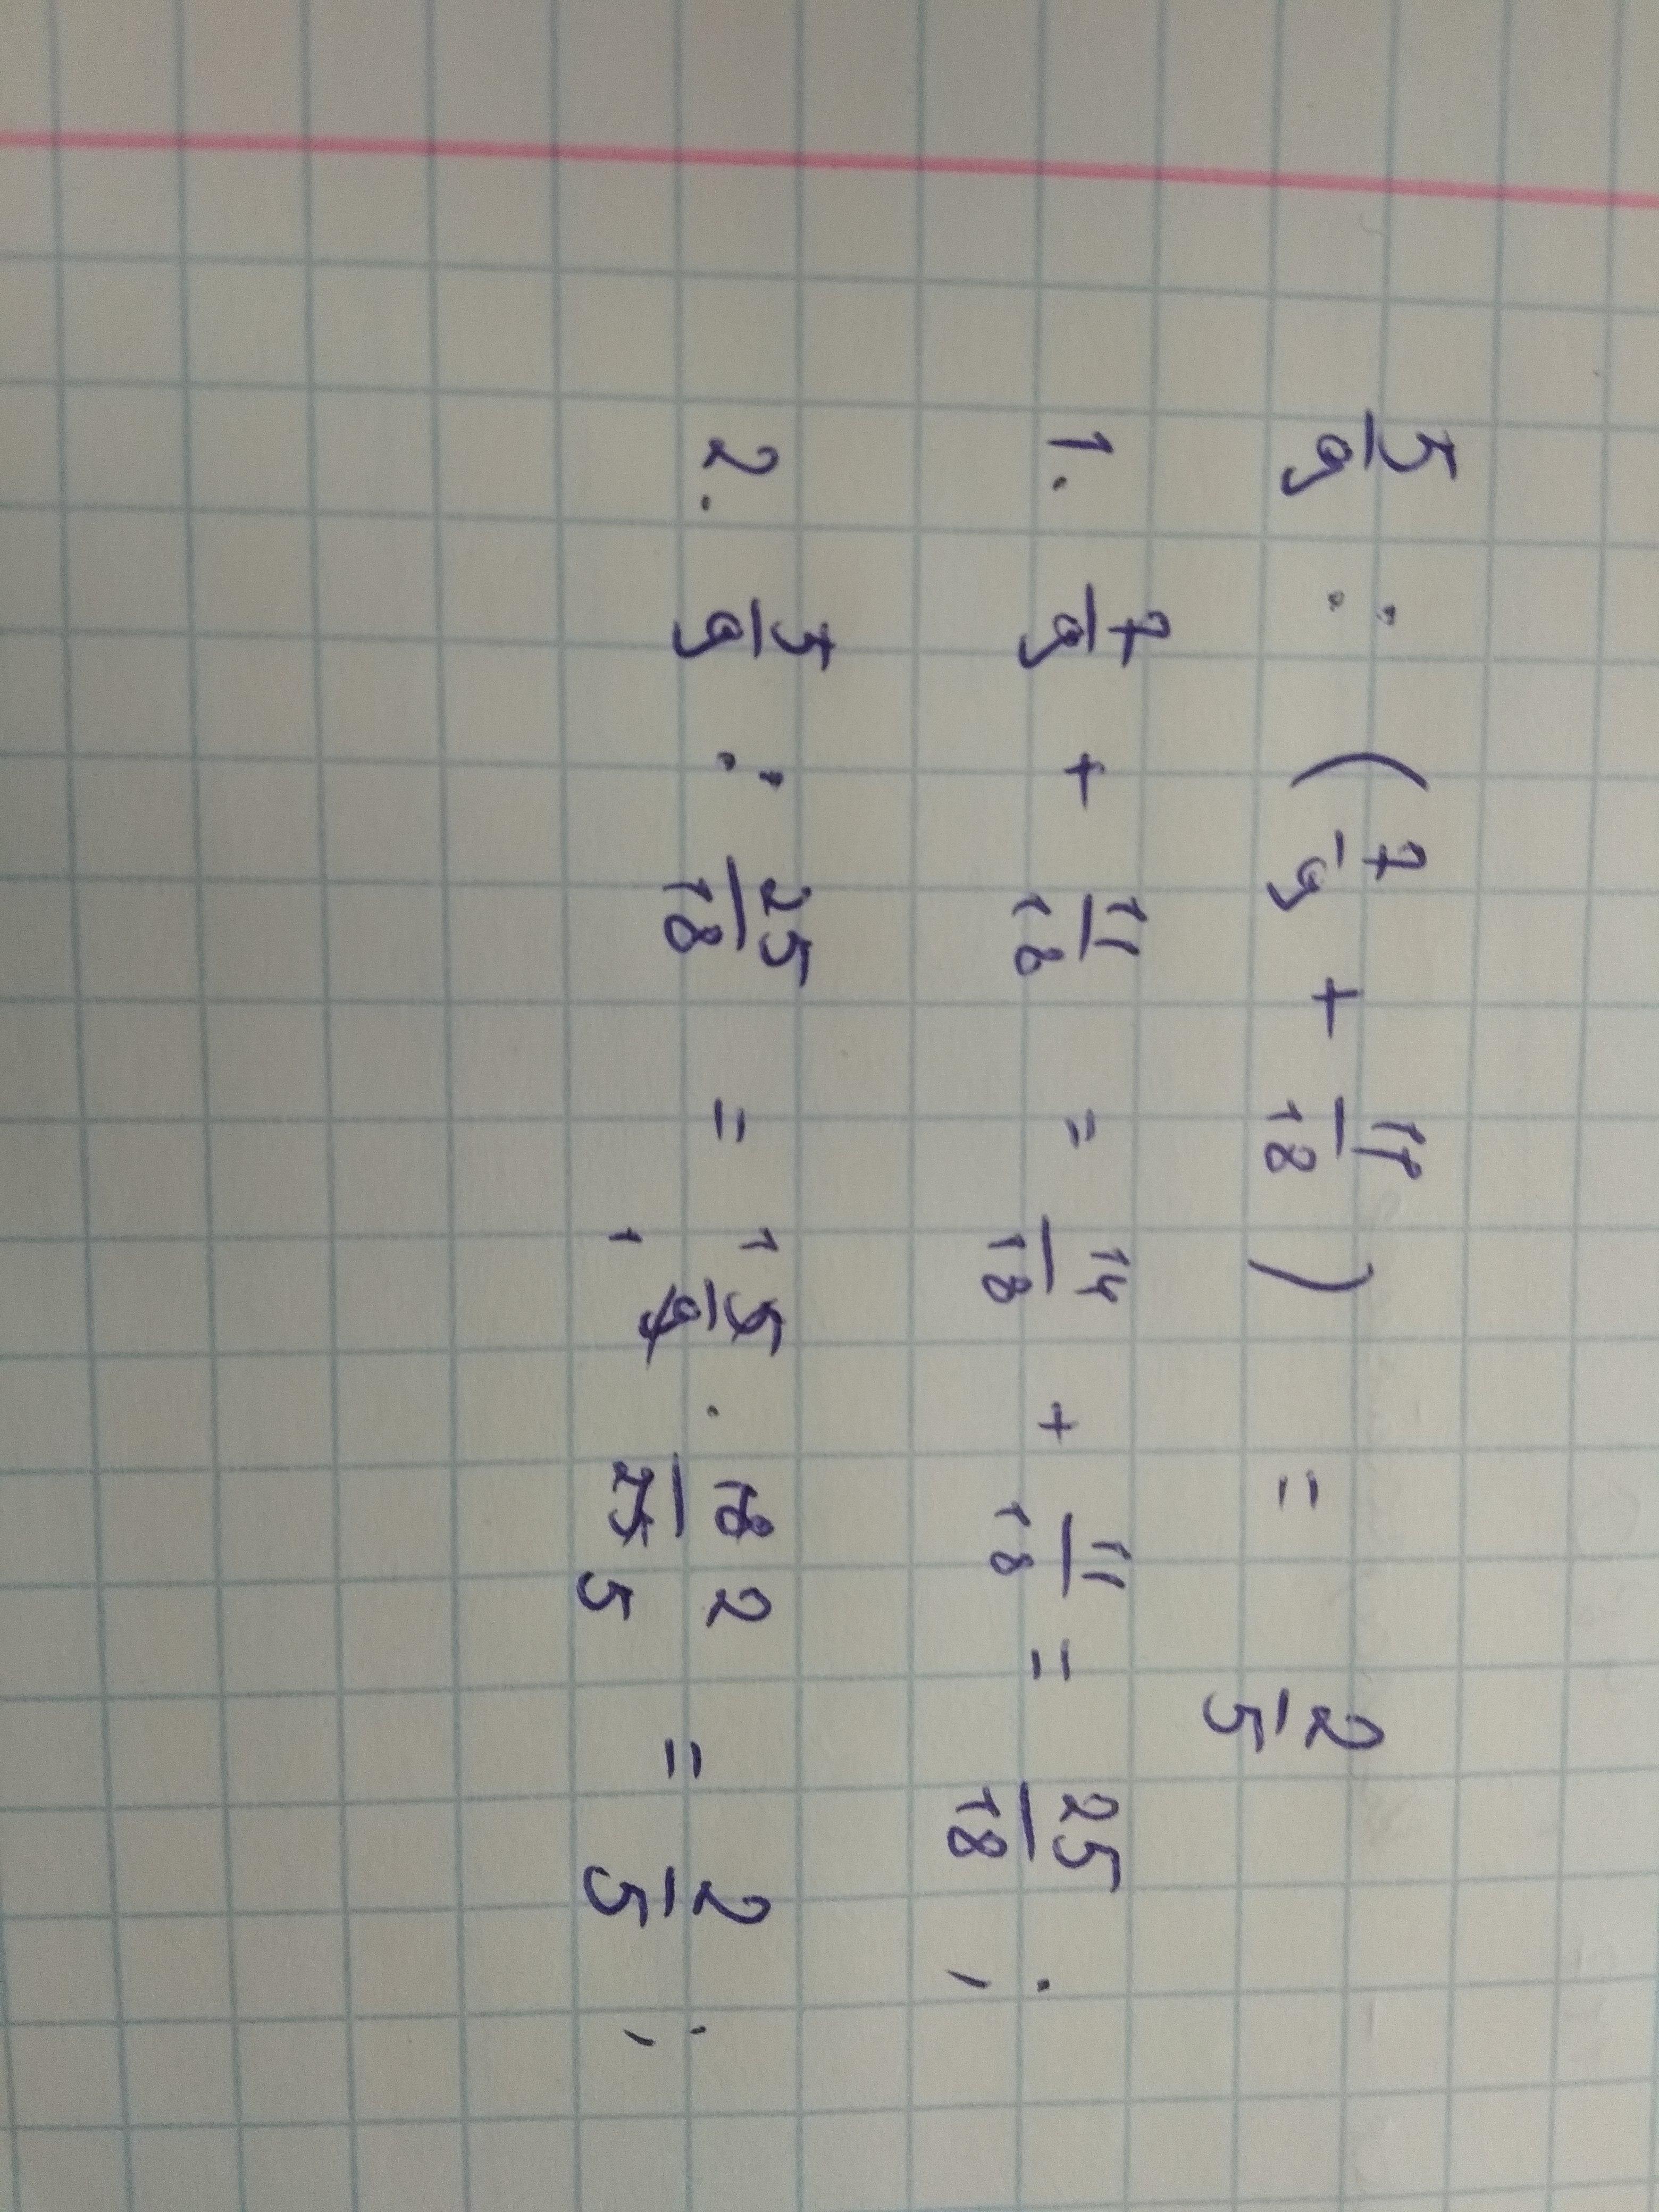 5/9 : (7/9 + 11/18) = 2/5
1. 7/9 + 11/18 = 14/18 + 11/18 = 25/18 ;
2. 5/9 : 25/18 = 1 5/9 1 · 18/25 2 5 = 2/5 ;